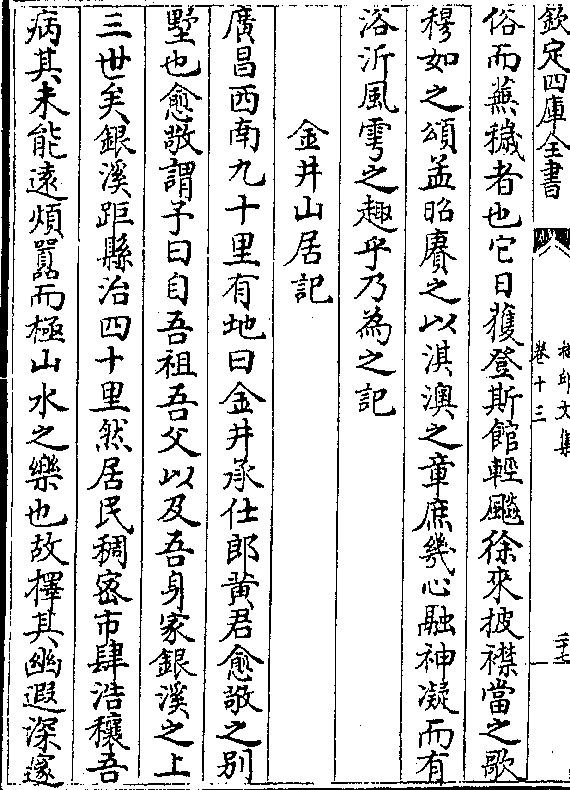 欽定四庫全書
卷十三
俗而蕪穢者也它日獲登斯館輕飈徐來披襟當之歌
穆如之頌孟昭賡之以淇澳之章庶幾心融神凝而有
浴沂風雩之趣乎乃為之記
金井山居記
廣昌西南九十里有地曰金井承仕郎黄君愈敬之别
墅也愈敬謂予曰自吾祖吾父以及吾身家銀溪之上
三世矣銀溪距縣治四十里然居民稠密市肆浩穰吾
病其未能遠煩囂而極山水之樂也故擇其幽遐深邃